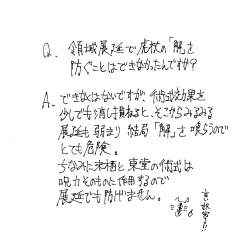 Q. 領域展延で虎杖の「解」を
防ぐことはできなかったんですか?
A. できなくはないですが、術式効果を
少しでも流し損ねると、そこからみるみる
展延も弱まり 結局「解」を喰らうので
とても危険。
ちなみに来栖と東堂の術式は
呪力そのものに作用するので
展延でも防げません。